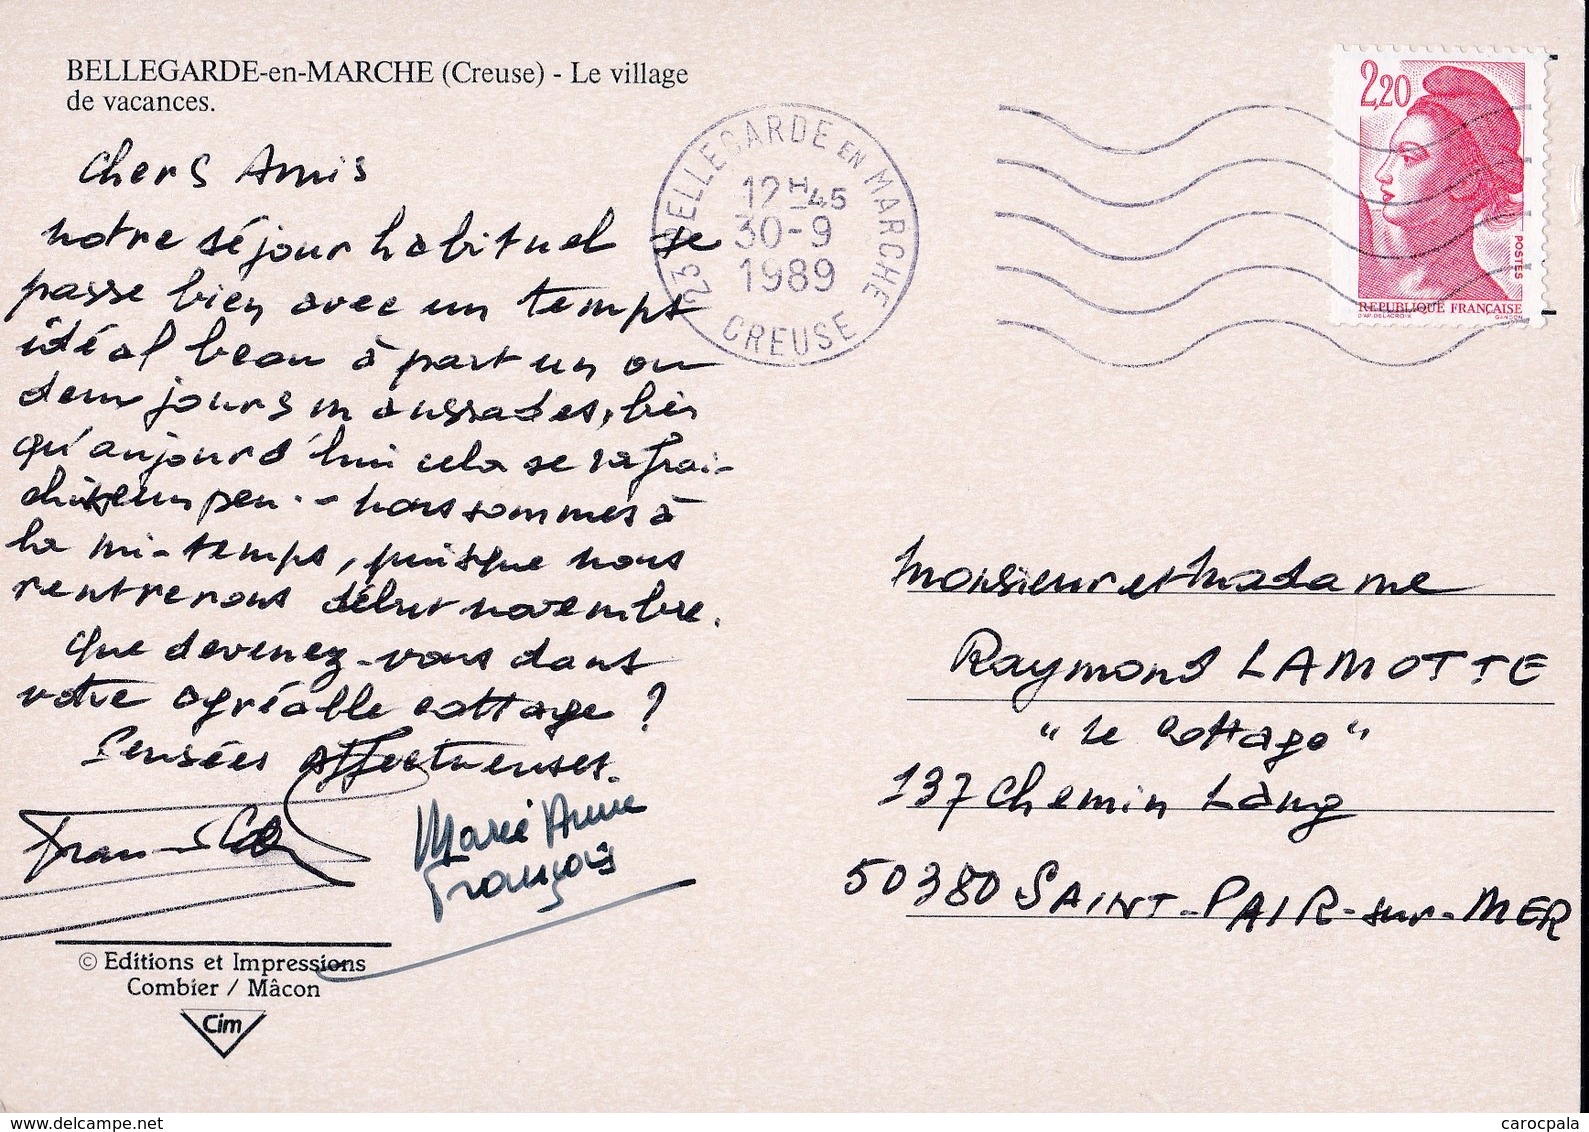 BELLEGARDE-en-MARCHE (Creuse) - Le village
de vacances.
Chers Amis
notre séjour habituel se
passe bien avec un temps
idéal beau à part un ou
deux jours maussades, bien
qu'aujourd'hui cela se rafraî-
chisse un peu. - nous sommes à
la mi-temps, puisque nous
rentrerons début novembre.
Que devenez-vous dans
votre agréable cottage ?
Pensées affectueuses.
Marie Anne
François
© Editions et Impressions
Combier / Mâcon
Cim
23 BELLEGARDE EN MARCHE
12H45
30-9
1989
CREUSE
2,20
POSTES
REPUBLIQUE FRANÇAISE
D'AP. DELACROIX GANDON
Monsieur et Madame
Raymond LAMOTTE
"Le Cottage"
137 Chemin Lang
50380 SAINT-PAIR-sur-MER
www.delcampe.net
carocpala